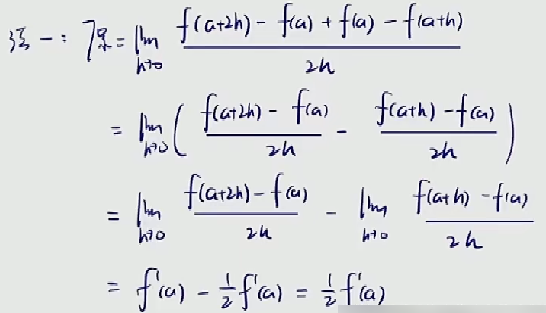 法一：原 = lim_{h→0} (f(a+2h) - f(a) + f(a) - f(a+h)) / 2h
= lim_{h→0} ( (f(a+2h) - f(a)) / 2h - (f(a+h) - f(a)) / 2h )
= lim_{h→0} (f(a+2h) - f(a)) / 2h - lim_{h→0} (f(a+h) - f(a)) / 2h
= f'(a) - 1/2 f'(a) = 1/2 f'(a)